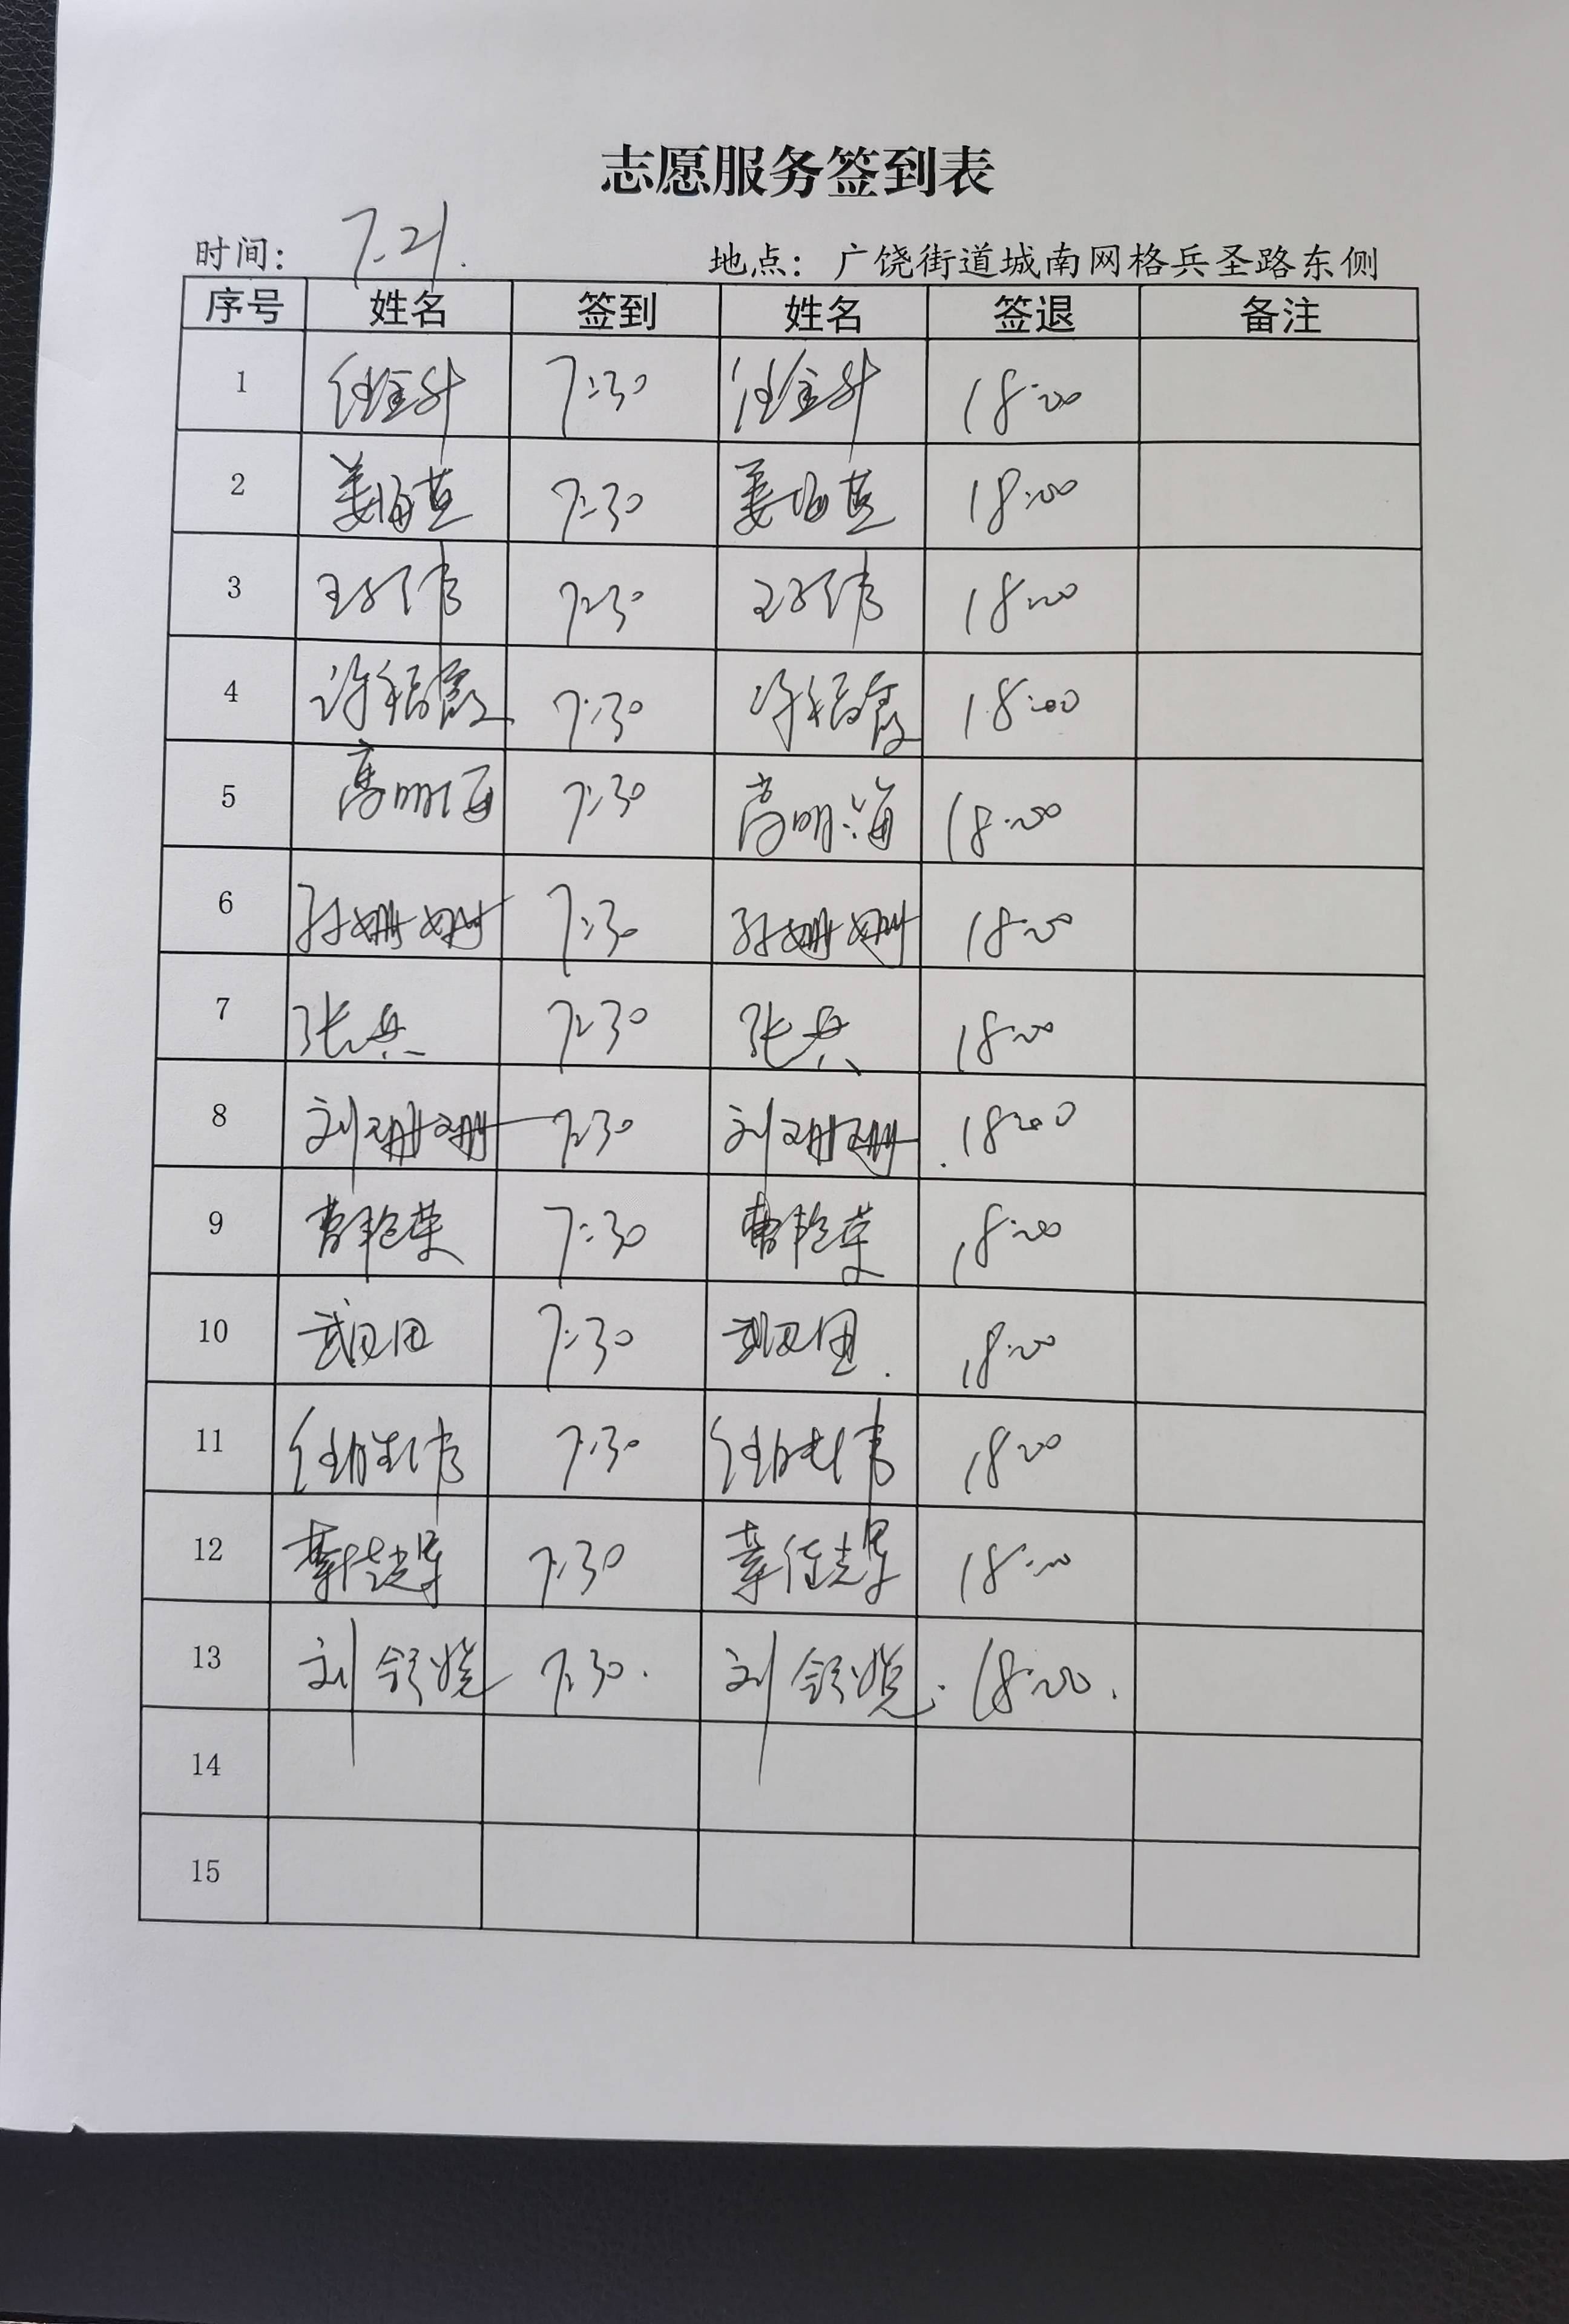 志愿服务签到表
时间: 7.21.
地点: 广饶街道城南网格兵圣路东侧
序号 姓名 签到 姓名 签退 备注
1 任金升 7:30 任金升 18:00
2 姜海燕 7:30 姜海燕 18:00
3 7:30 18:00
4 7:30 18:00
5 高明海 7:30 高明海 18:00
6 孙姗姗 7:30 孙姗姗 18:00
7 张兵 7:30 张兵 18:00
8 刘珊珊 7:30 刘珊珊 18:00
9 曹艳荣 7:30 曹艳荣 18:00
10 7:30 18:00
11 任胜伟 7:30 任胜伟 18:00
12 7:30 18:00
13 刘 7:30. 刘 18:00.
14
15